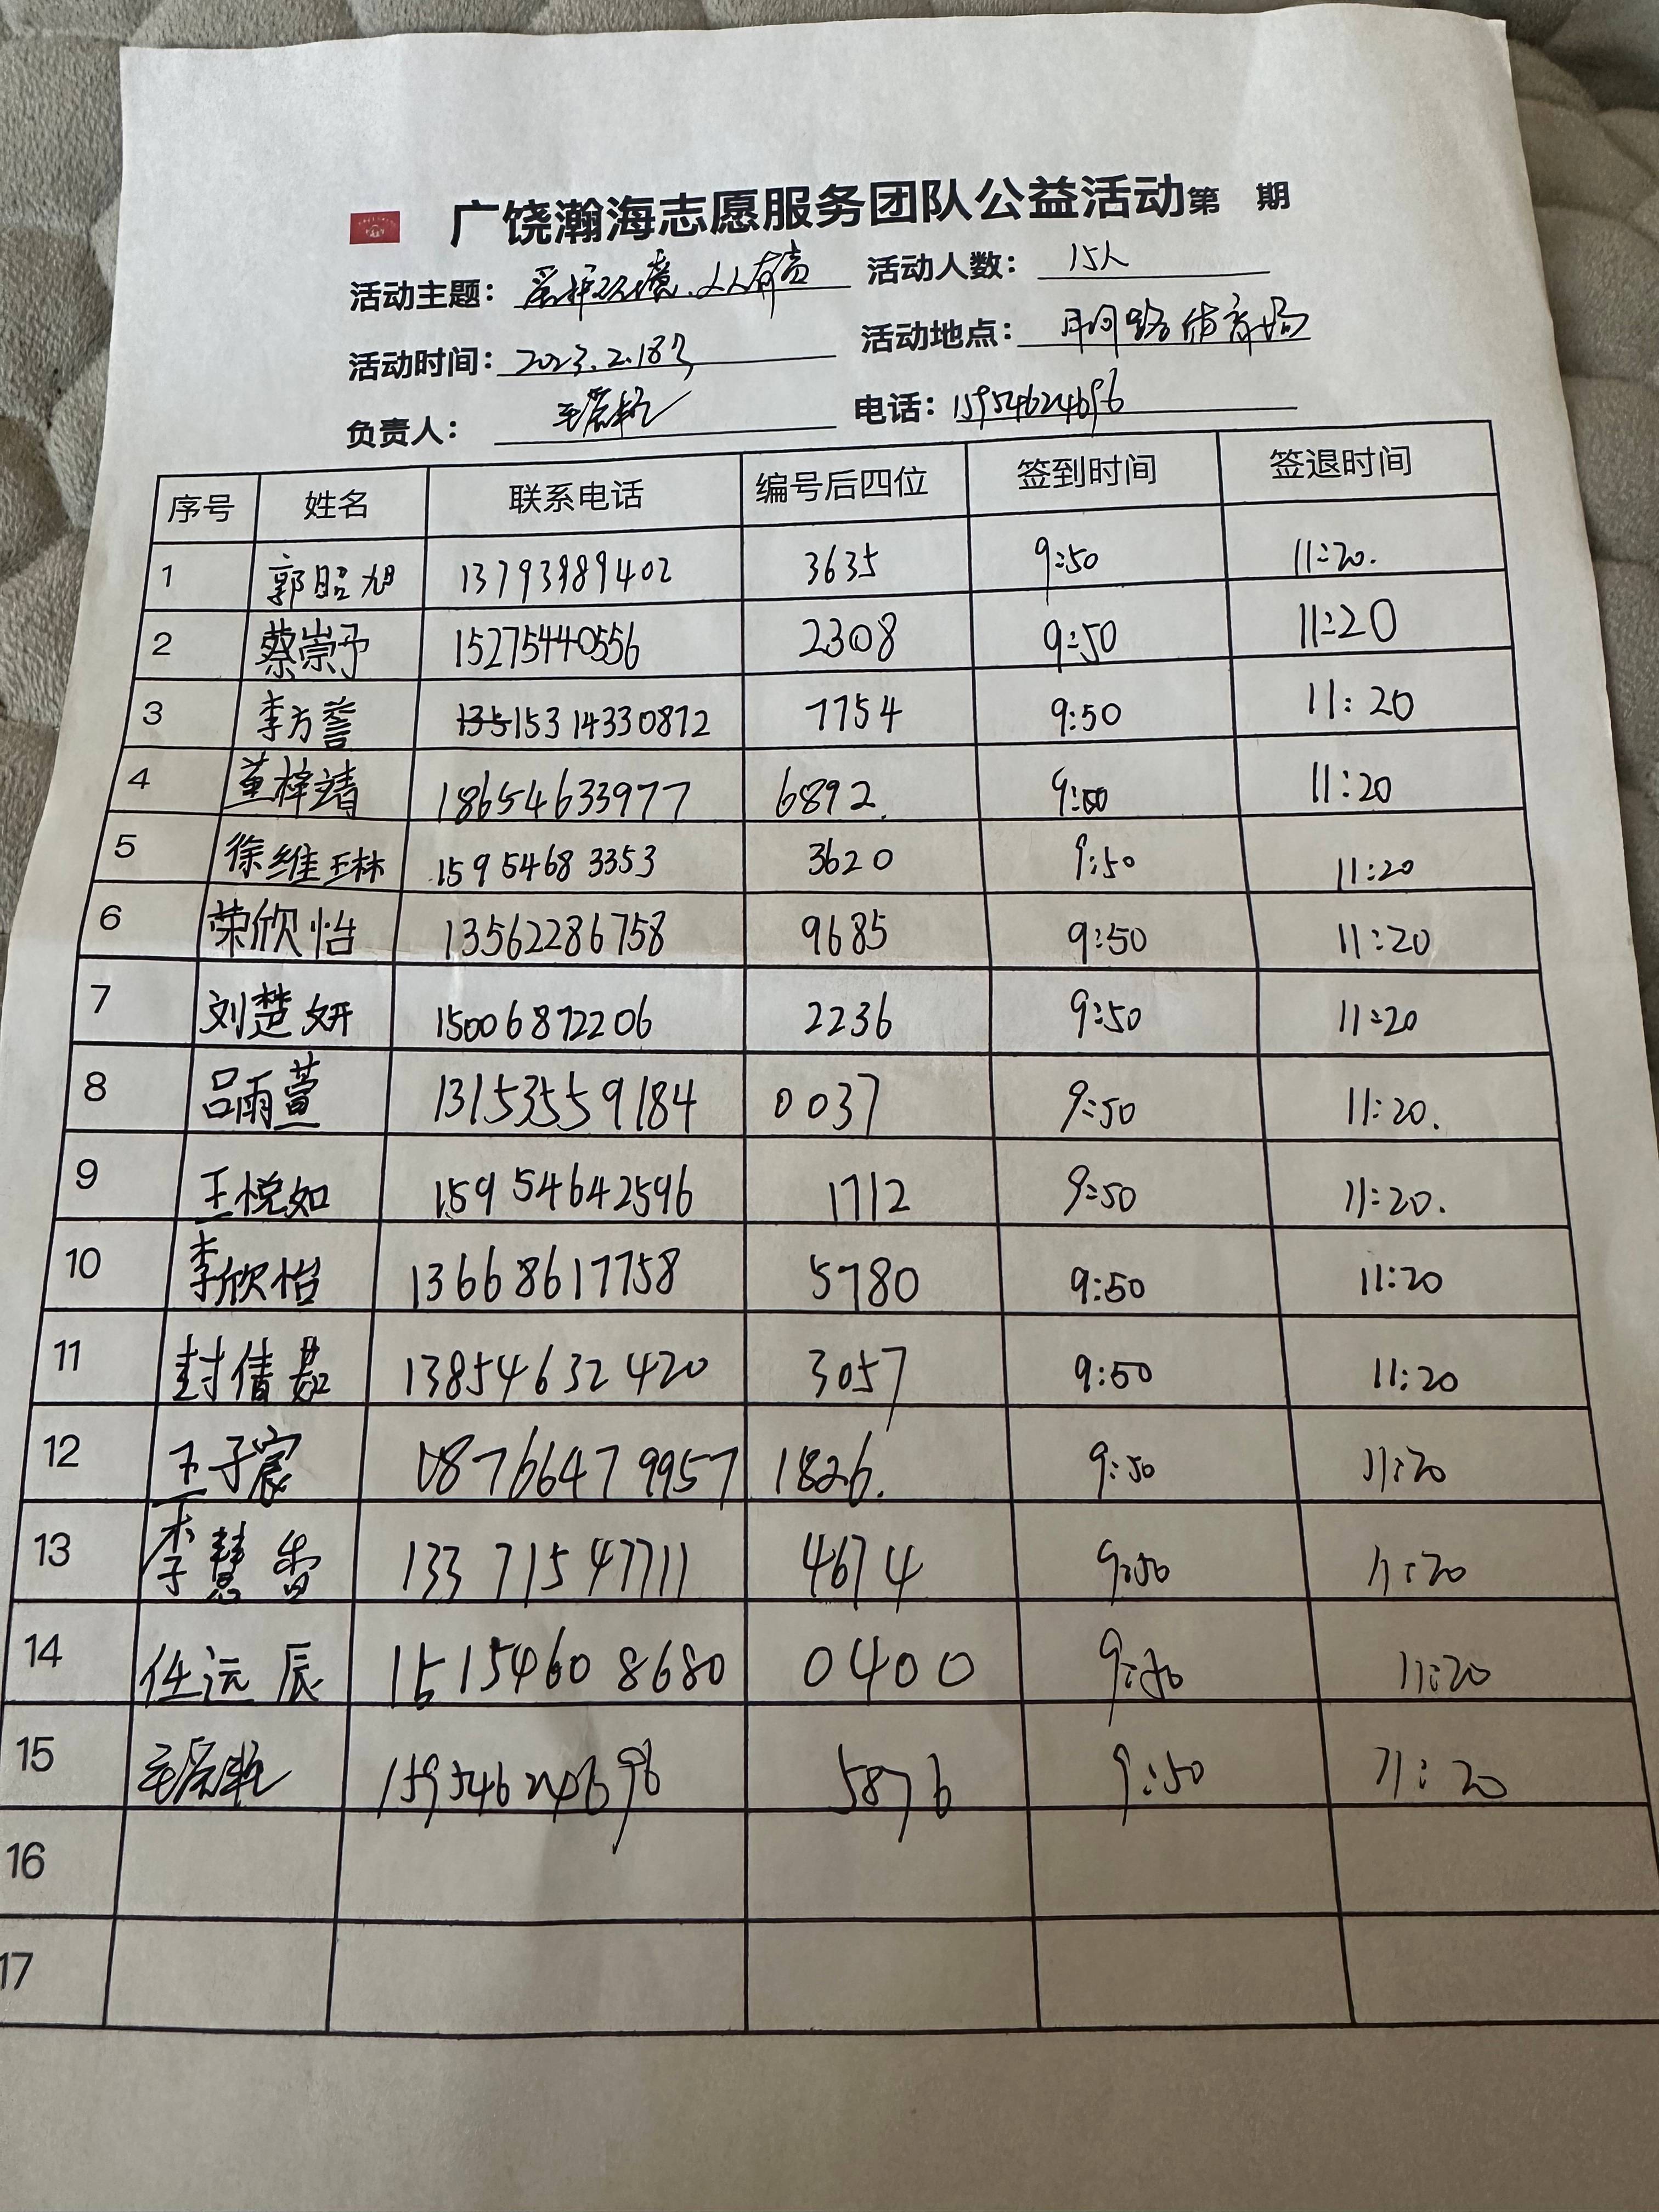 广饶瀚海志愿服务团队公益活动第 期
活动主题：爱护环境.人人有责 活动人数：15人
活动时间：2023.2.18号 活动地点：月河路体育场
负责人： 电话：15954624696
序号 姓名 联系电话 编号后四位 签到时间 签退时间
1 郭昭旭 13793989402 3635 9:50 11:20.
2 蔡崇予 15275440556 2308 9:50 11:20
3 李方誉 15314330872 7754 9:50 11:20
4 董梓靖 18654633977 6892. 9:50 11:20
5 徐维琳 15954683353 3620 9:50 11:20
6 荣欣怡 13562286758 9685 9:50 11:20
7 刘楚妍 15006872206 2236 9:50 11:20
8 吕雨萱 13153559184 0037 9:50 11:20.
9 王悦如 15954642596 1712 9:50 11:20.
10 李欣怡 13668617758 5780 9:50 11:20
11 封倩茹 13854632420 3057 9:50 11:20
12 王子宸 1826. 9:50 11:20
13 李慧 13371547711 4674 9:50 11:20
14 任远辰 15154608680 0400 9:50 11:20
15 15954624696 5876 9:50 11:20
16
17